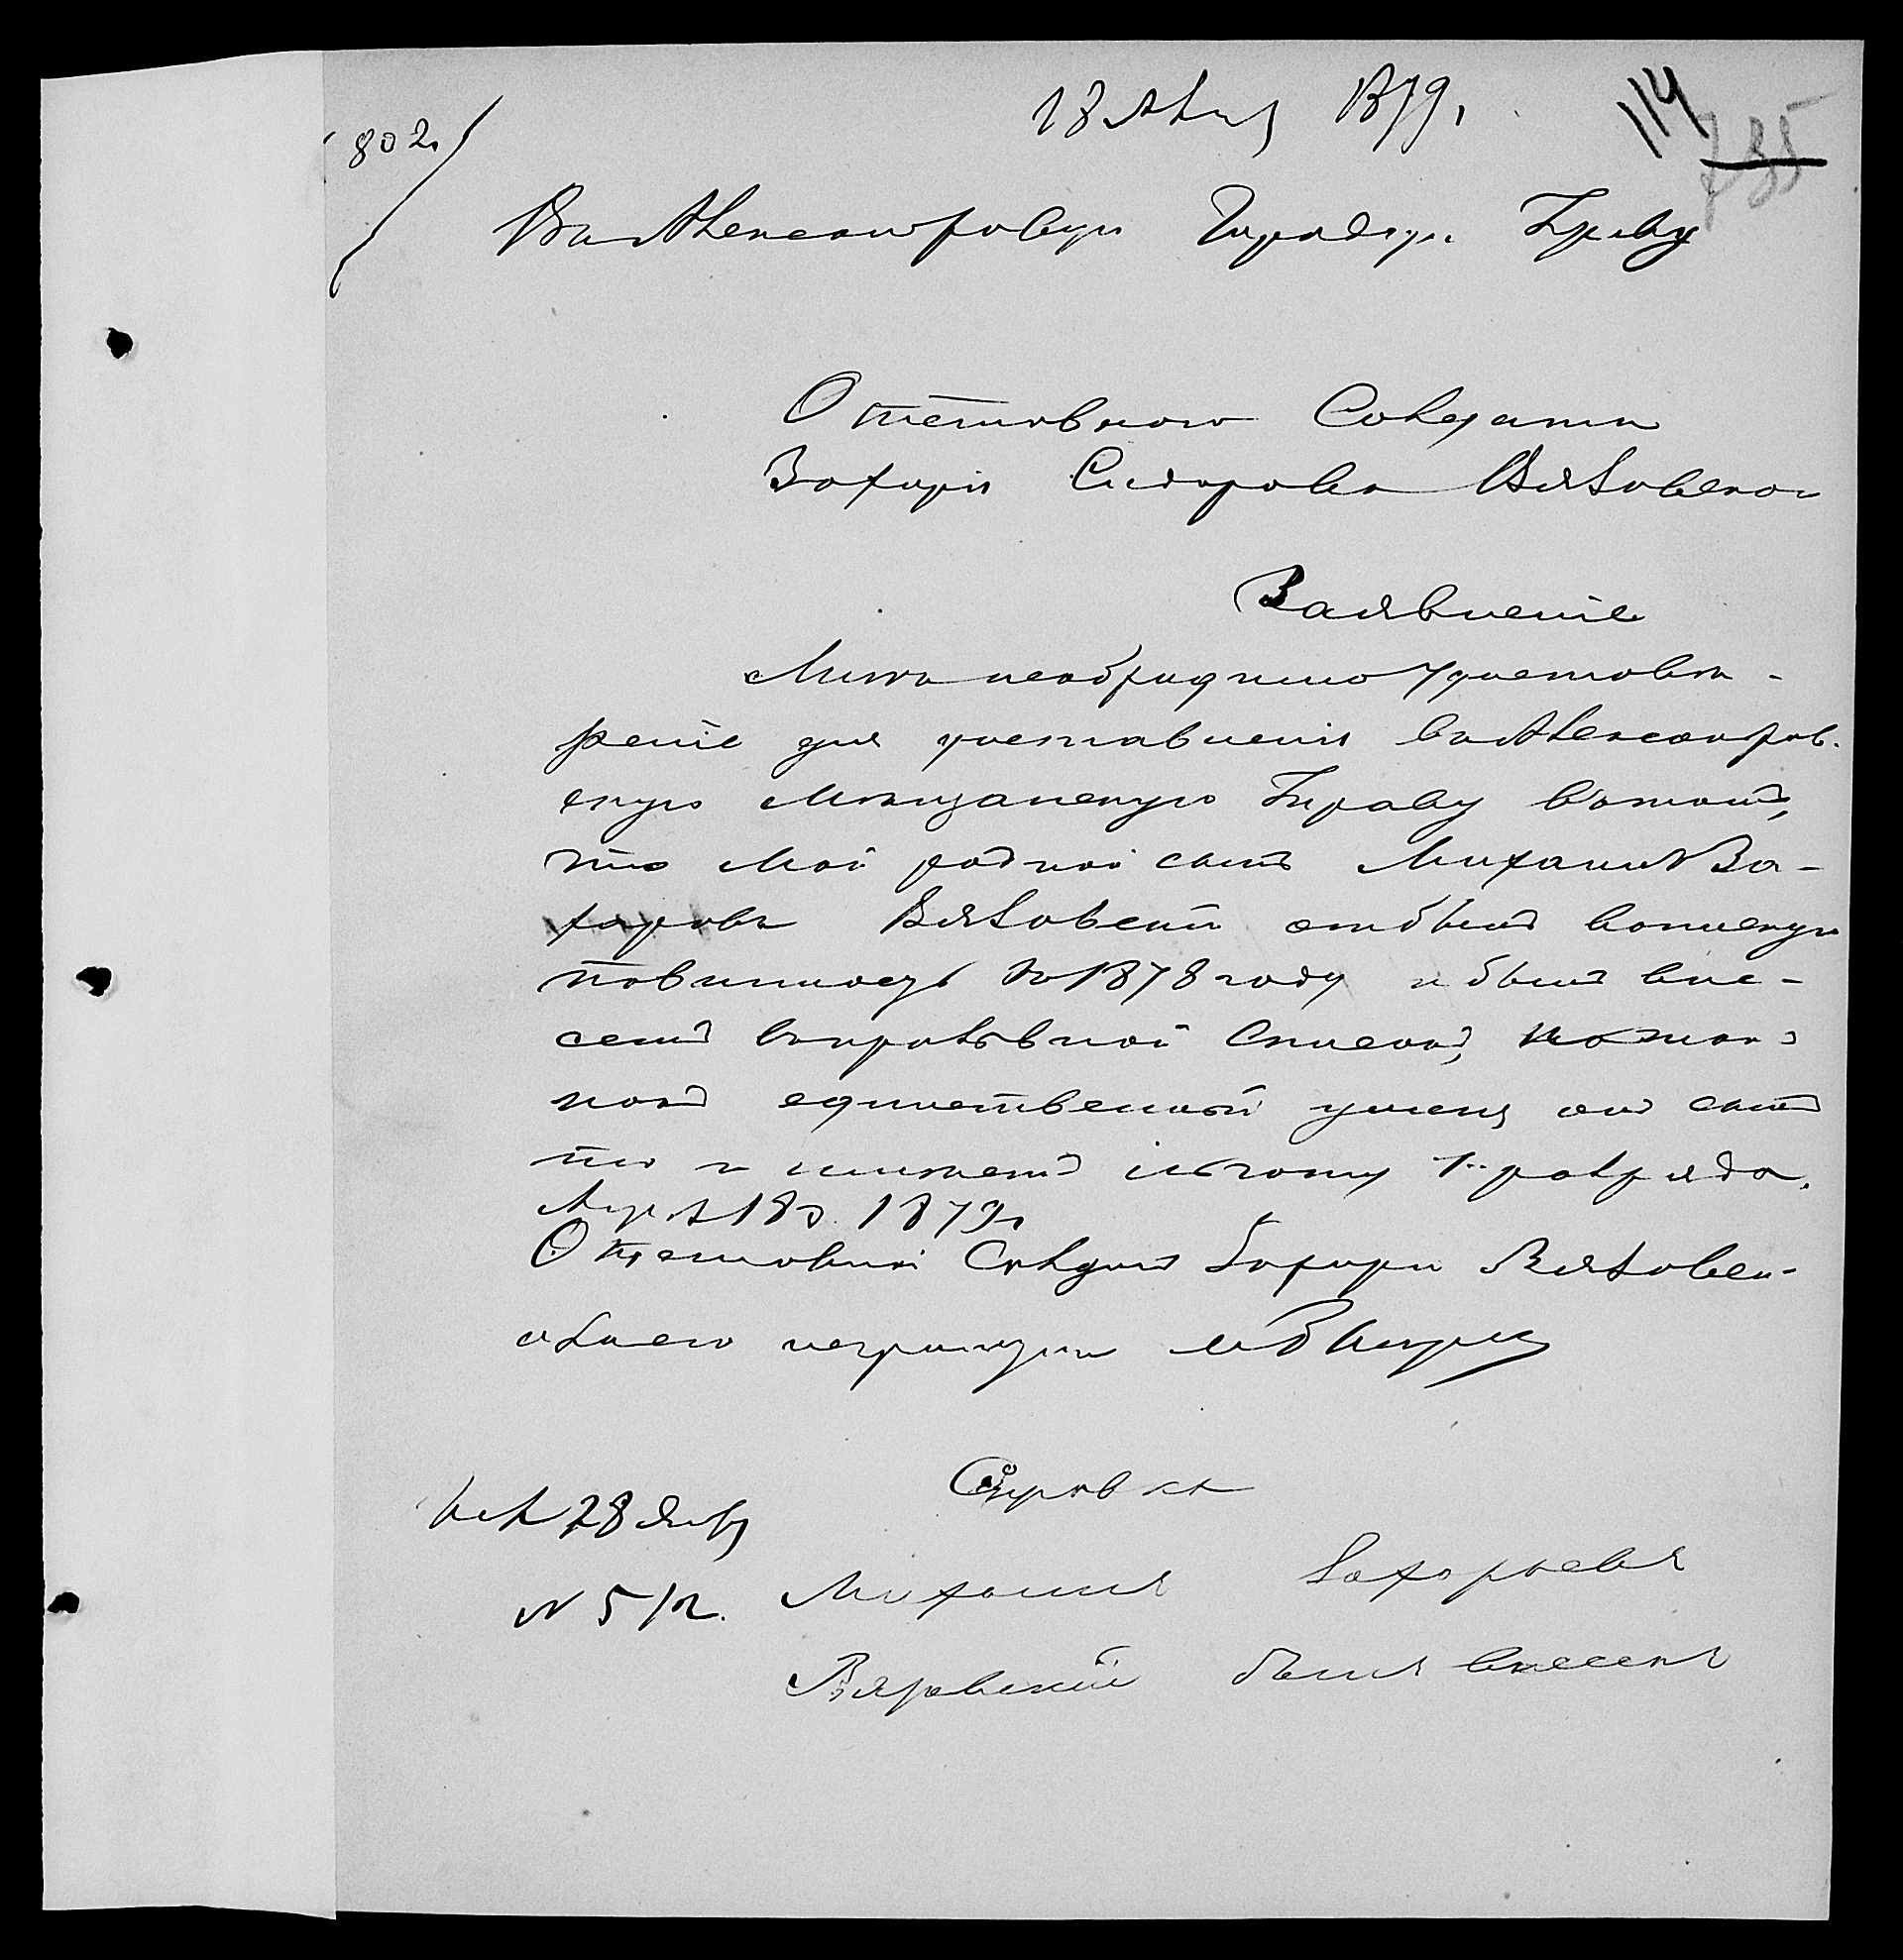 802.
18 Авгу 1879 г
114
735
Въ Александровскую Городскую Управу
Отставного Солдата
Захарія Сидорова Вязовского
Заявленіе
Мнѣ необходимо Удостовѣ-
реніе для представленія въ Александров.
скую Мѣщанскую Управу въ томъ,
что Мой родной сынъ Михаилъ За-
харовъ Вязовскій отбылъ воинскую
повинность въ 1878 году и былъ вне-
сенъ въ призывной Списокъ,
какъ единственный у меня сынъ
то и имѣетъ льготу 1го разряда.
18 1879 г
Отставной Солдатъ Захарій Вязовск-
неграмотный
Справка
28
№ 512.
Михаилъ Захарьевъ
Вязовскій былъ внесенъ